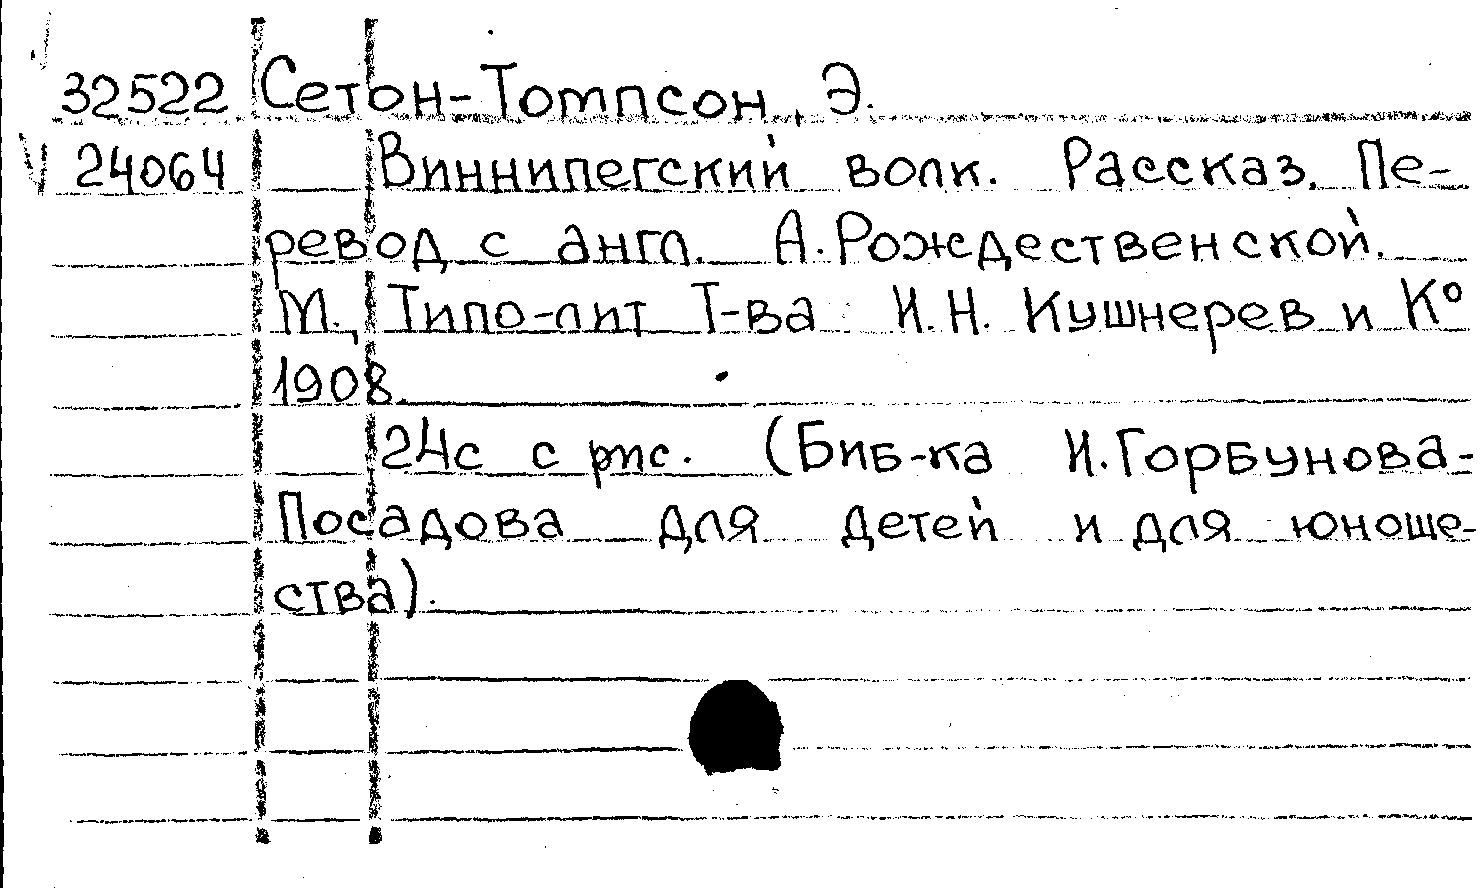 32522 Сетон-Томпсон, Э.
24064 Виннипегский волк. Рассказ. Пе-
ревод с англ. А. Рождественской.
М., Типо-лит Т-ва И.Н. Кушнерев и К°
1908.
24с с рис. (Биб-ка И. Горбунова-
Посадова для детей и для юноше-
ства).